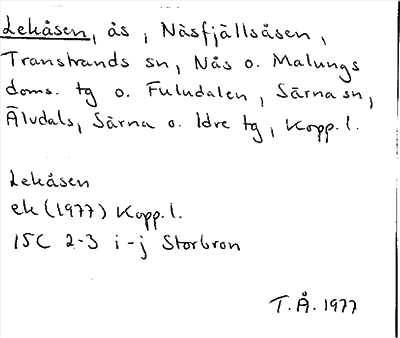 Lekåsen, ås, Näsfjällsåsen,
Transtrands sn, Nås o. Malungs
doms. tg o. Fuludalen, Särna sn,
Älvdals, Särna o. Idre tg, Kopp. l.
Lekåsen
ek (1977) Kopp. l.
15C 2-3 i-j Storbron
T.Å. 1977